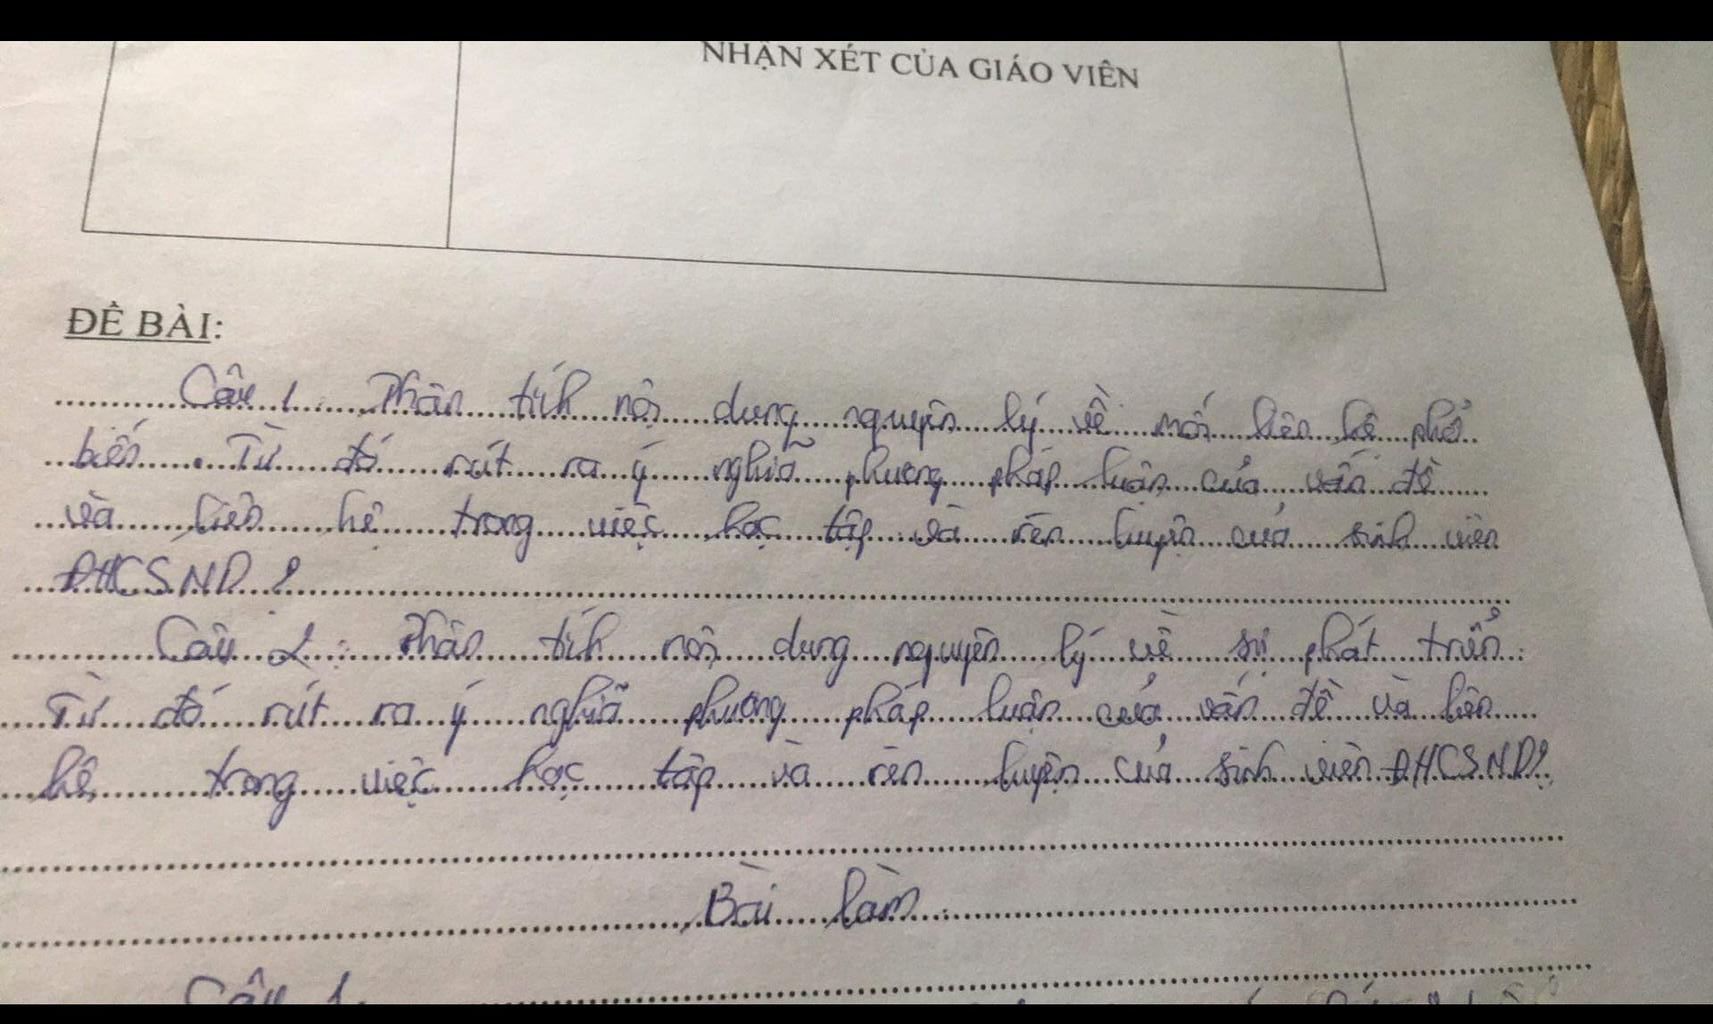 NHẬN XÉT CỦA GIÁO VIÊN
ĐỀ BÀI:
Câu 1. Phân tích nội dung nguyên lý về mối liên hệ phổ
biến. Từ đó rút ra ý nghĩa phương pháp luận của vấn đề
và liên hệ trong việc học tập và rèn luyện của sinh viên
ĐHCSND?
Câu 2: Phân tích nội dung nguyên lý về sự phát triển.
Từ đó rút ra ý nghĩa phương pháp luận của vấn đề và liên
hệ trong việc học tập và rèn luyện của sinh viên ĐHCSND?
Bài làm
Câu 1.